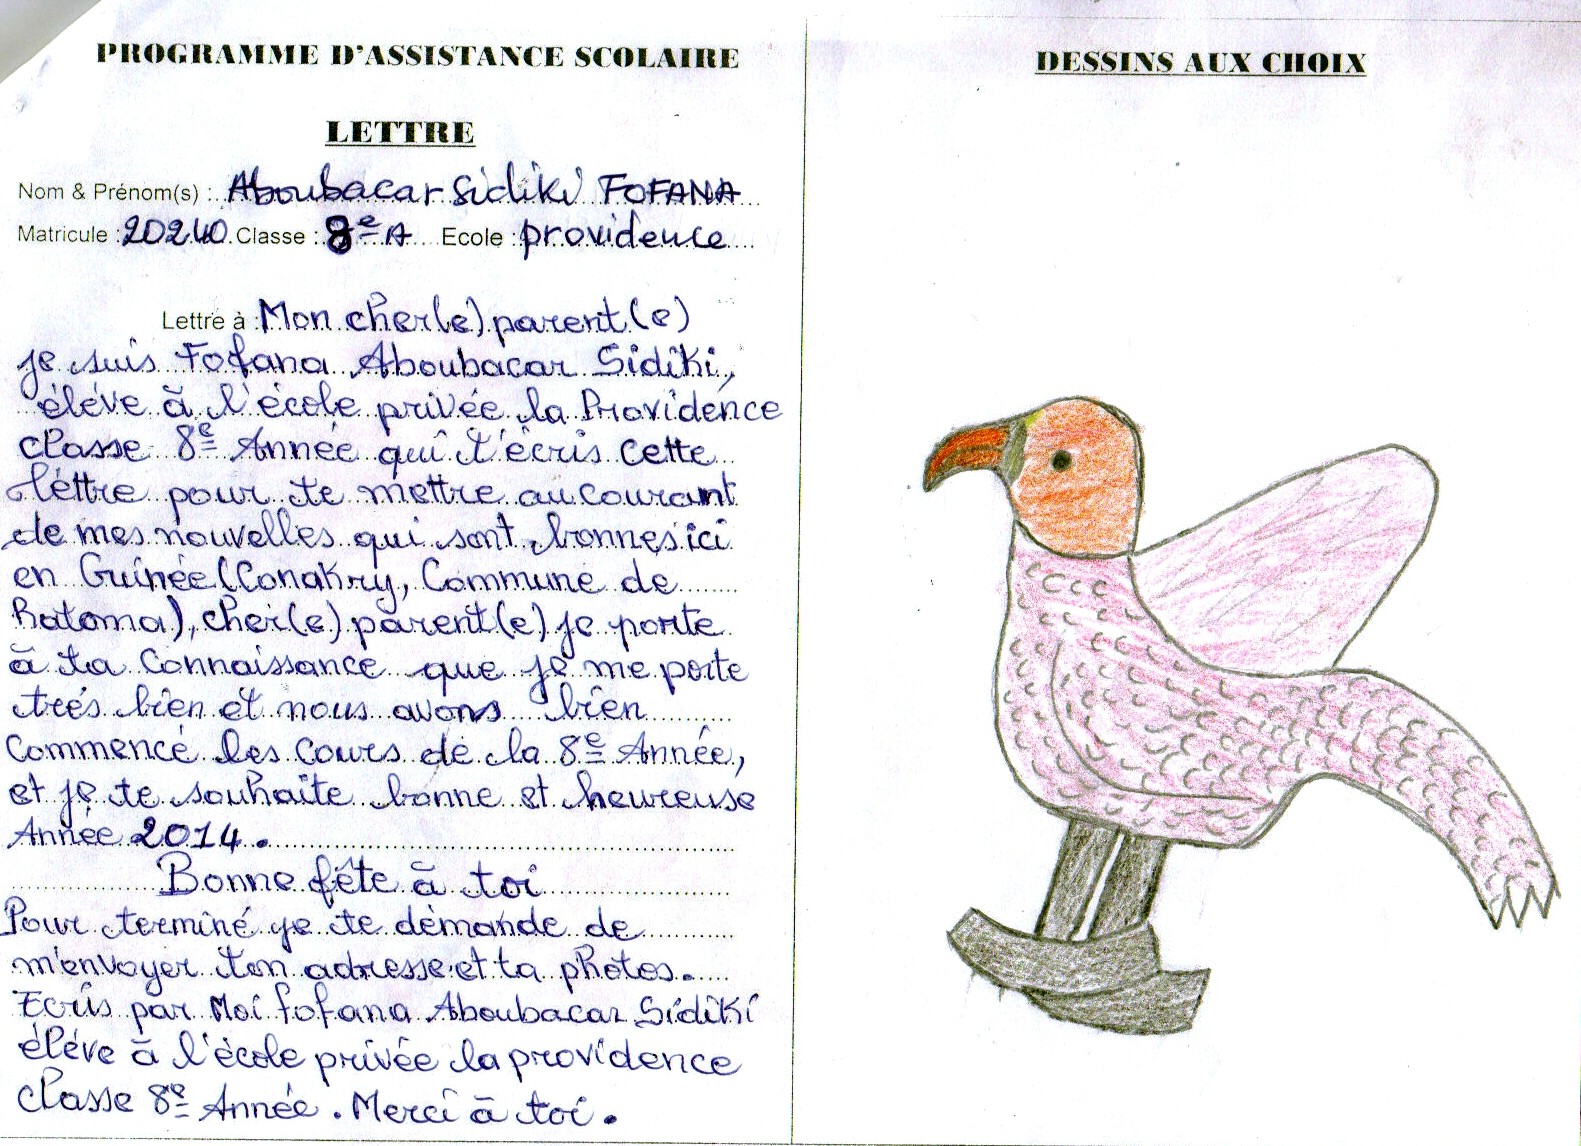 PROGRAMME D'ASSISTANCE SCOLAIRE
LETTRE
Nom & Prénom(s) : Aboubacar Sidiki FOFANA
Matricule : 20240 Classe : 8e A Ecole : providence
Lettre à : Mon cher(e) parent(e)
je suis Fofana Aboubacar Sidiki,
éléve à l'école privée la Providence
classe 8e Année qui t'écris cette
lettre pour te mettre au courant
de mes nouvelles qui sont bonnes ici
en Guinée (Conakry, Commune de
Ratoma), cher(e) parent(e) je porte
à ta connaissance que je me porte
trés bien et nous avons bien
commencé les cours de la 8e Année,
et je te souhaite bonne et heureuse
Année 2014.
Bonne fête à toi
Pour terminé je te demande de
m'envoyer ton adresse et ta photos.
Ecris par Moi fofana Aboubacar Sidiki
éléve à l'école privée la providence
classe 8e Année. Merci à toi.
DESSINS AUX CHOIX